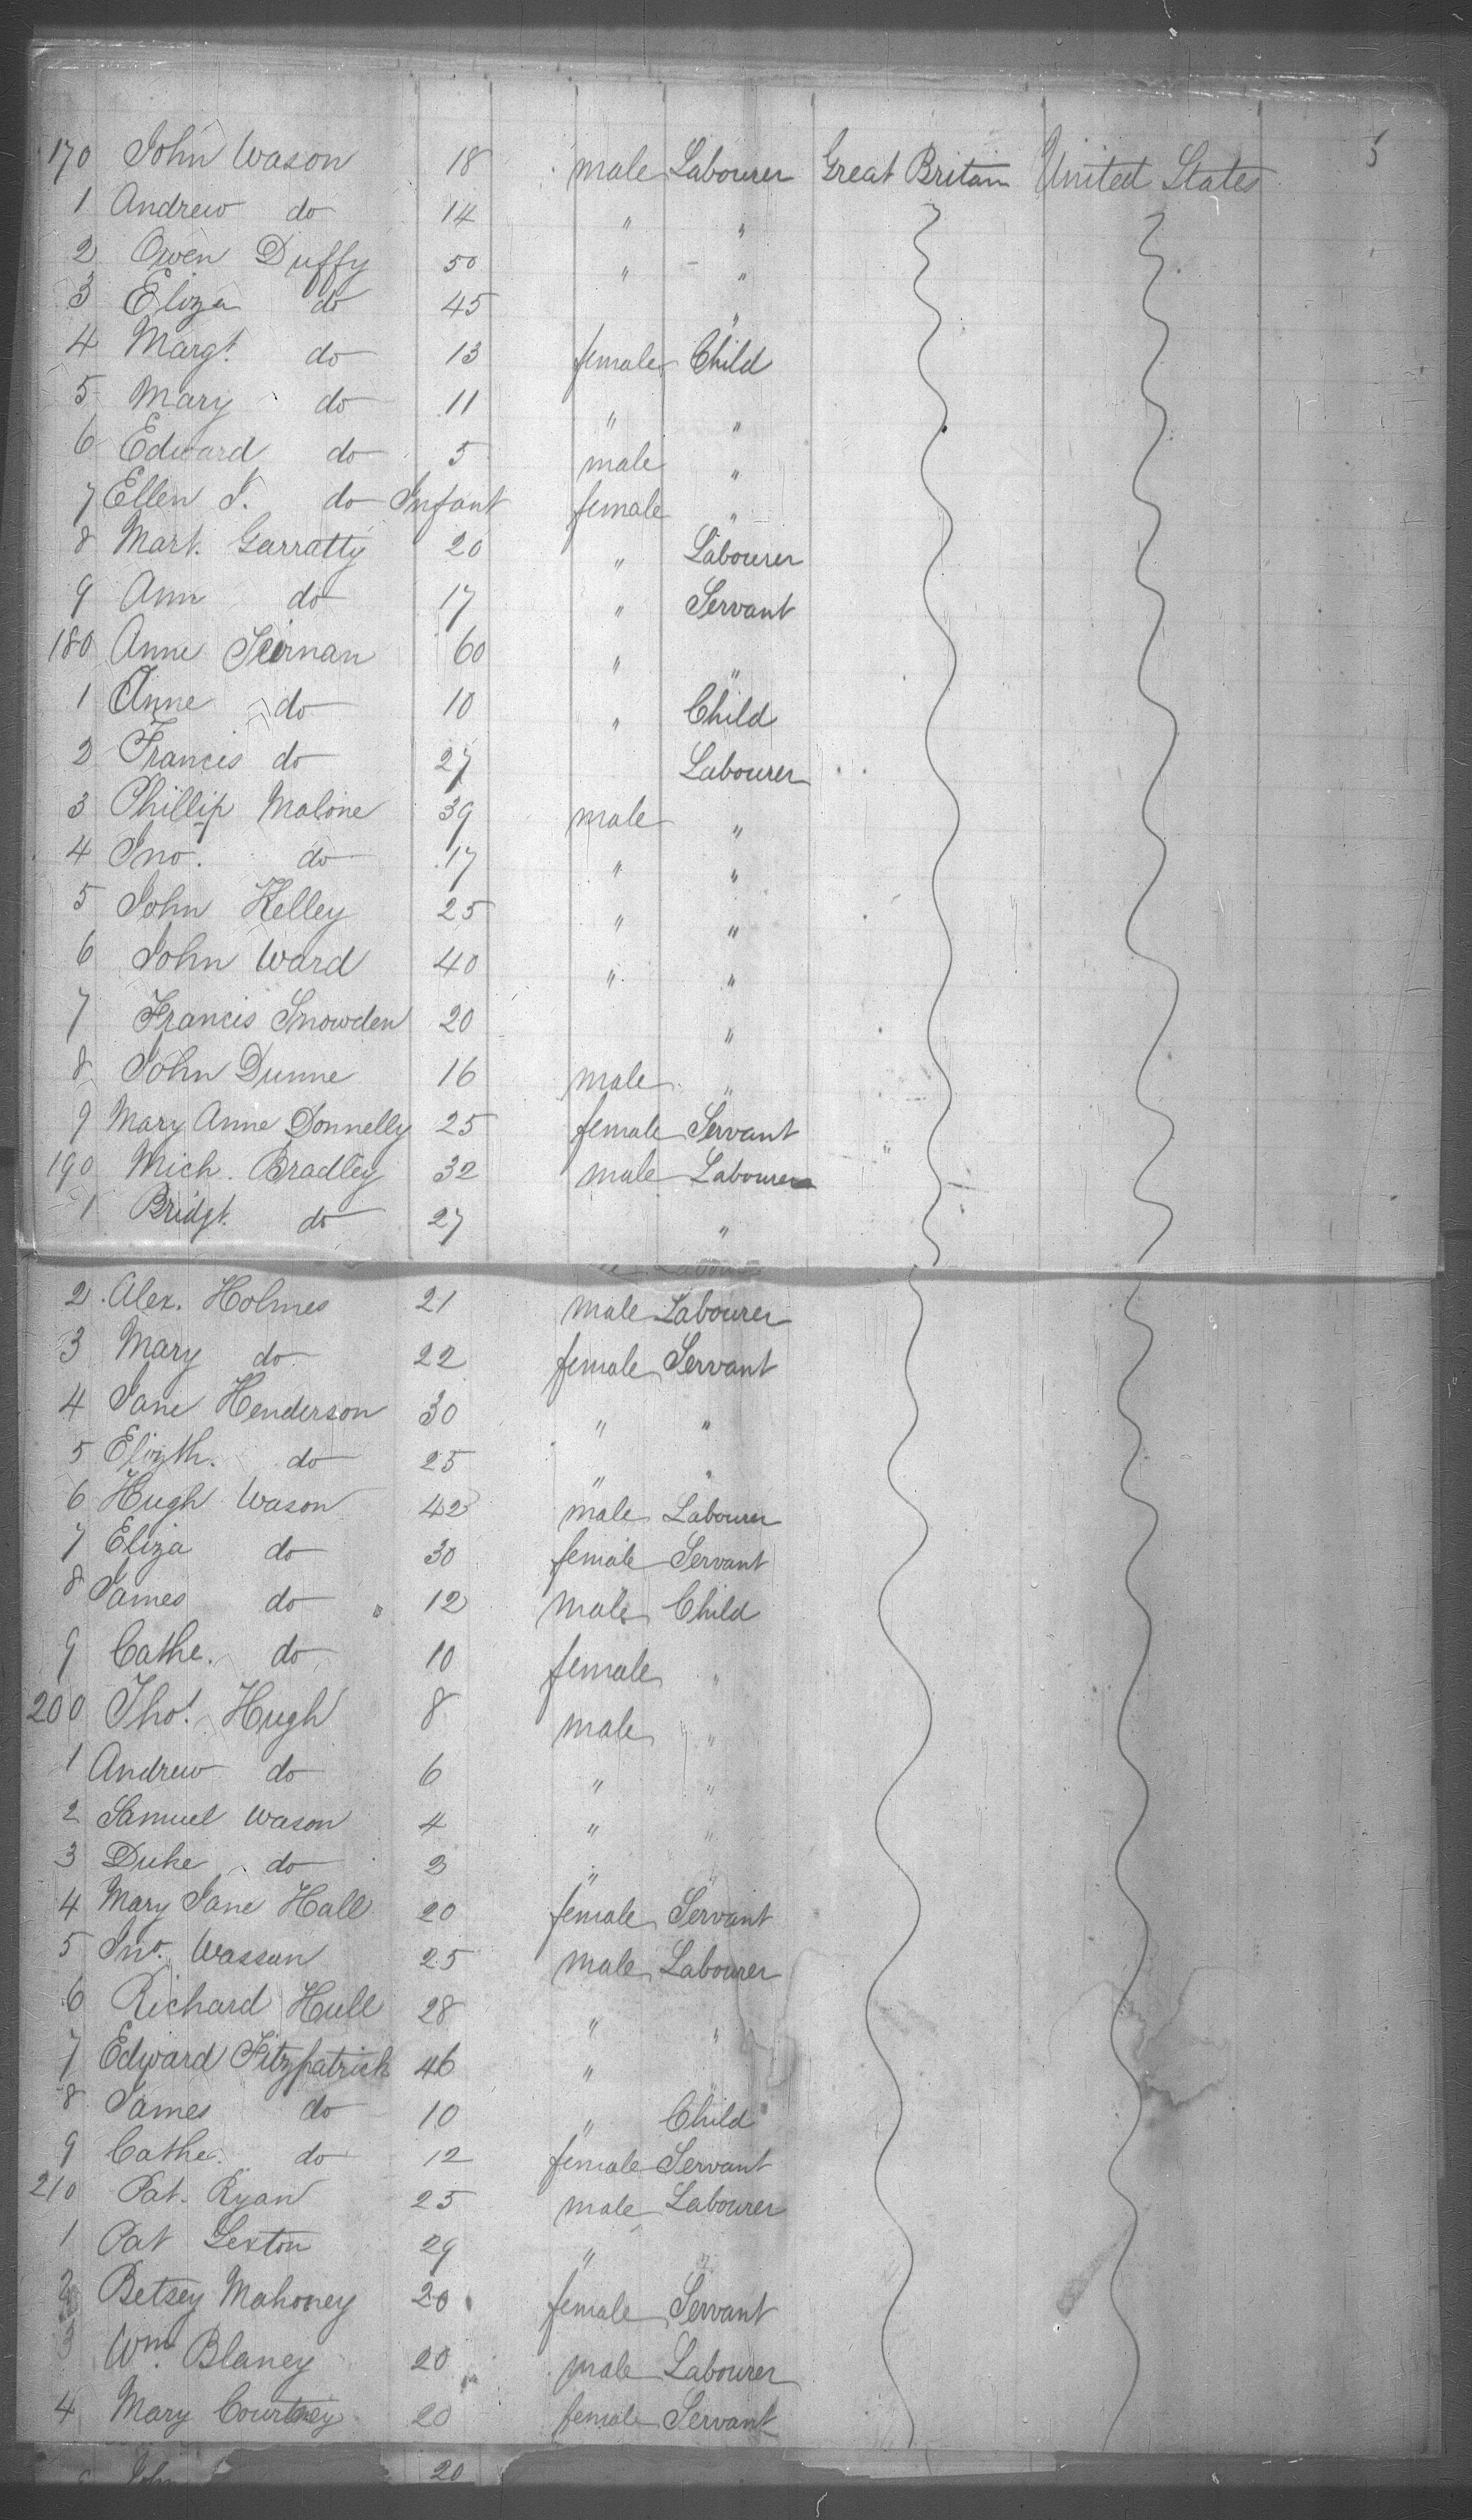 5
170 John Wason 18 male Labourer Great Britain United States
1 Andrew do 14 " "
2 Owen Duffy 50 " "
3 Eliza do 45 "
4 Margt. do 13 female Child
5 Mary do 11 " "
6 Edward do 5 male "
7 Ellen J. do Infant female "
8 Mart. Garratty 20 " Labourer
9 Ann do 17 " Servant
180 Anne 60 " "
1 Anne do 10 " Child
2 Francis do 27 Labourer
3 Phillip Malone 39 male "
4 Jno. do 17 " "
5 John Kelley 25 " "
6 John Ward 40 " "
7 Francis Snowden 20 "
8 John Dunne 16 male "
9 Mary Anne Donnelly 25 female Servant
190 Mich. Bradley 32 male Labourer
1 Bridgt. do 27 "
2 Alex. Holmes 21 male Labourer
3 Mary do 22 female Servant
4 Jane Henderson 30 " "
5 Elizth. do 25 " "
6 Hugh Wason 42 male Labourer
7 Eliza do 30 female Servant
8 James do " 12 male Child
9 Cathe. do 10 female "
200 Thos. Hugh 8 male "
1 Andrew do 6 " "
2 Samuel Wason 4 " "
3 Duke do 2 " "
4 Mary Jane Hall 20 female Servant
5 Jno. Wassan 25 male Labourer
6 Richard Hull 28 " "
7 Edward Fitzpatrick 46 "
8 James do 10 " Child
9 Cathe. do 12 female Servant
210 Pat. Ryan 25 male Labourer
1 Pat Sexton 29 " "
2 Betsey Mahoney 20 female Servant
3 Wm. Blaney 20 male Labourer
4 Mary Courtney 20 female Servant
John 20